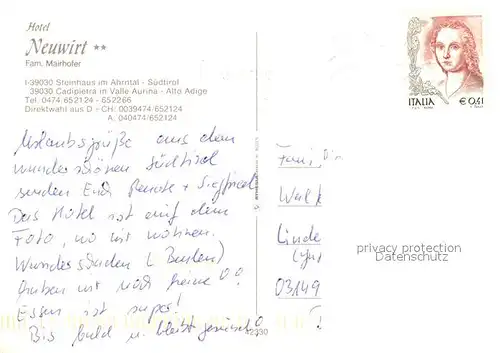 Hotel
Neuwirt **
Fam. Mairhofer
I-39030 Steinhaus im Ahrntal - Südtirol
39030 Cadipietra in Valle Aurina - Alto Adige
Tel. 0474/652124 - 652266
Direktwahl aus D - CH: 0039474/652124
A: 040474/652124
Urlaubsgrüße aus dem
wunderschönen Südtirol
senden Euch Renate + Siegfried
Das Hotel ist auf dem
Foto, wo wir wohnen.
haben wir noch keine
Essen ist super!
Bis bald u. bleibt gesund
ITALIA € 0,41
Fam.
Linde
03149
privacy protection
Datenschutz
42330